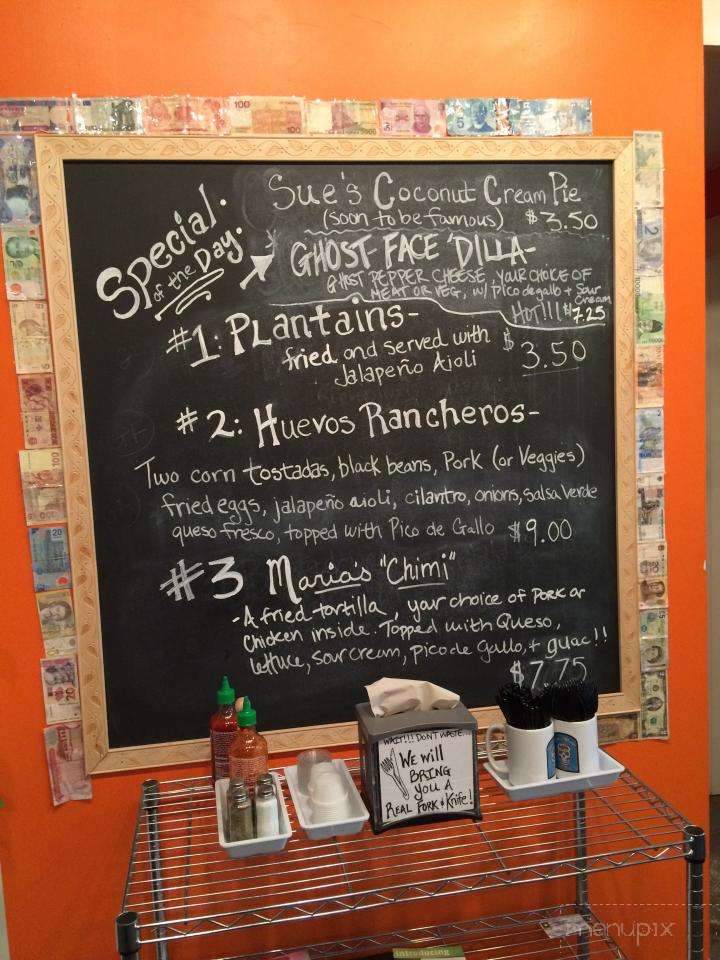 Special.
of the Day.
Sue's Coconut Cream Pie
(soon to be famous) $3.50
GHOST FACE 'DILLA-
GHOST PEPPER CHEESE, YOUR CHOICE OF
MEAT OR VEG, w/ pico de gallo + Sour
Cream
HOT!!! $7.25
#1: PLantains-
fried and served with
Jalapeño Aioli
$3.50
#2: Huevos Rancheros-
Two corn tostadas, black beans, Pork (or Veggies)
fried eggs, jalapeño aioli, cilantro, onions, salsa verde
queso fresco, topped with Pico de Gallo $9.00
#3 Maria's "Chimi"
-A fried tortilla, your choice of PORK or
Chicken inside. Topped with Queso,
lettuce, sour cream, pico de gallo, + guac!!
$7.75
WAIT!!! DON'T WASTE...
We will
BRING
you A
REAL FORK & Knife!
introducing
menupix